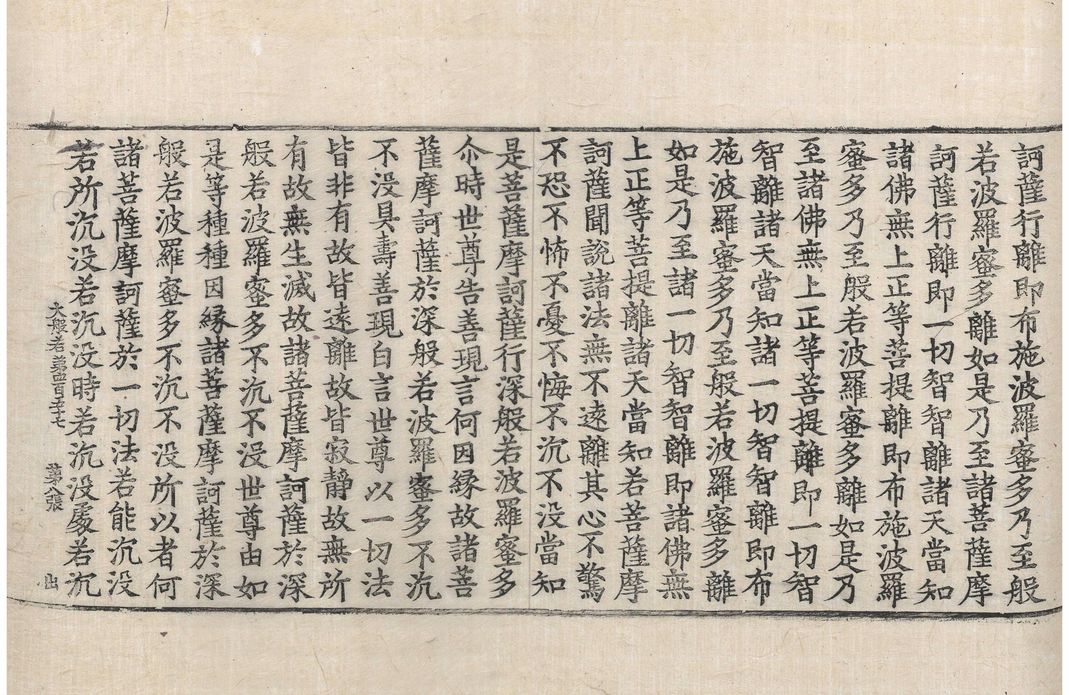 訶薩行離即布施波羅蜜多乃至般
若波羅蜜多離如是乃至諸菩薩摩
訶薩行離即一切智智離諸天當知
諸佛無上正等菩提離即布施波羅
蜜多乃至般若波羅蜜多離如是乃
至諸佛無上正等菩提離即一切智
智離諸天當知諸一切智智離即布
施波羅蜜多乃至般若波羅蜜多離
如是乃至諸一切智智離即諸佛無
上正等菩提離諸天當知若菩薩摩
訶薩聞說諸法無不遠離其心不驚
不恐不怖不憂不悔不沉不没當知
是菩薩摩訶薩行深般若波羅蜜多
尒時世尊告善現言何因緣故諸菩
薩摩訶薩於深般若波羅蜜多不沉
不没具壽善現白言世尊以一切法
皆非有故皆遠離故皆寂靜故無所
有故無生滅故諸菩薩摩訶薩於深
般若波羅蜜多不沉不没世尊由如
是等種種因緣諸菩薩摩訶薩於深
般若波羅蜜多不沉不没所以者何
諸菩薩摩訶薩於一切法若能沉没
若所沉没若沉没時若沉没處若沉
大般若第四百五十七 第八張 出